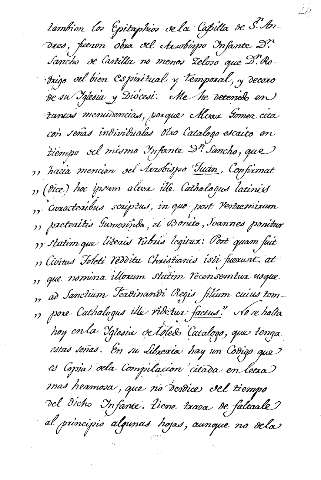 tambien los Epitaphios de la Capilla de S.n An-
dres, fueron obra del Arzobispo Infante D.n
Sancho de Castilla no menos zeloso que D.n Ro-
drigo del bien espiritual, y temporal, y decoro
de su Iglesia y Diocesi. Me he detenido en
tantas menudencias, porque Alvar Gomez cita
con señas individuales otro Catalogo escrito en
tiempo del mismo Infante D.n Sancho, que
hacia mencion del Arzobispo Juan. Confirmat
„ (dice) hoc ipsum aliud ille Cathalogus latinis
„ caracteribus scriptus, in quo post
„ praeteritis Gumesindo, et Bonito, Joannes ponitur
„ statimque literis rubris legitur: Post quam fuit
„ Civitas Toleti reddita Christianis isti fuerunt. at
„ que nomina illorum statim recensentur usque
„ ad Sanctium Ferdinandi Regis filium cuius tem-
„ pore Cathalogus ille videtur factus." No se halla
hoy en la Iglesia de Toledo Catalogo, que tenga
estas señas. En su Libreria hay un Codigo que
es Copia de la Compilacion citada en letra
mas hermosa, que no desdice del tiempo
del dicho Infante. Tiene traza de faltarle
al principio algunas hojas, aunque no de la